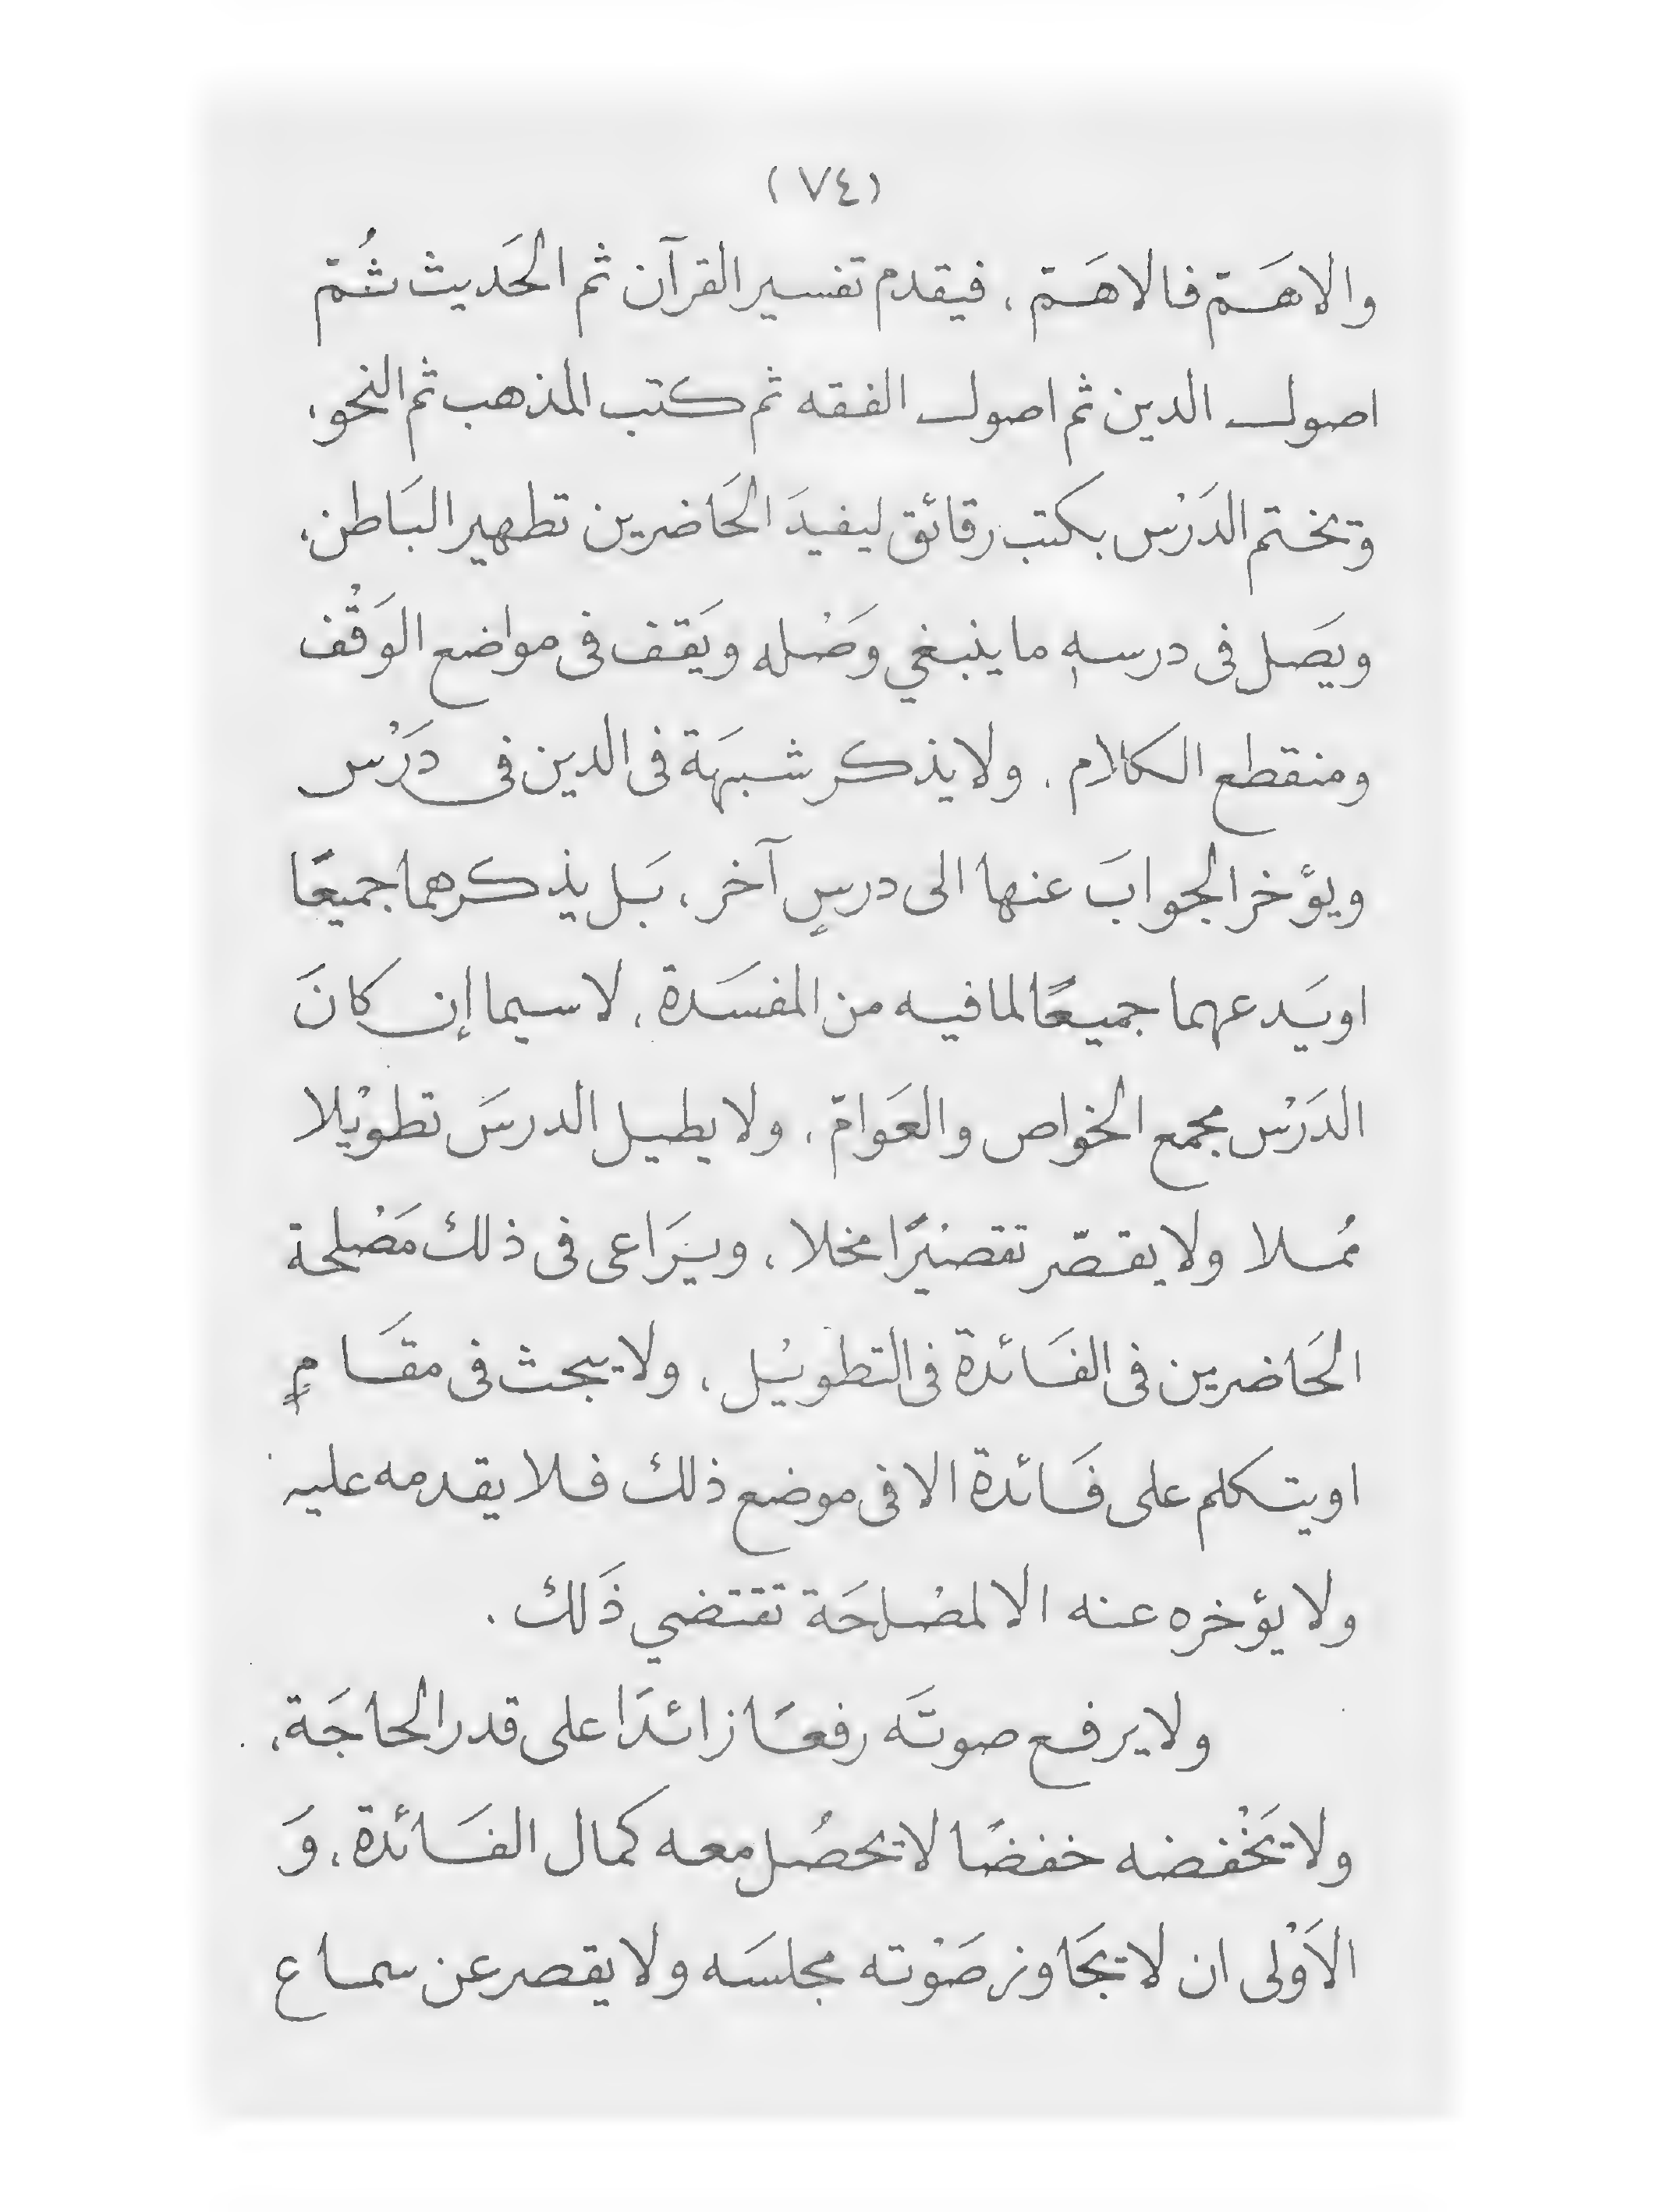 (٧٤)
والاهَمّ فالاهَمّ، فيقدم تفسير القرآن ثم الحَديث ثُمّ
اصول الدين ثم اصول الفقه ثم كتب المذهب ثم النحو،
ويختم الدَرْس بكتب رقائق ليفيدَ الحَاضرين تطهير البَاطن،
ويَصَل فى درسهٖ ما ينبغي وَصْله ويَقف فى مواضع الوَقْف
ومنقطع الكلام. ولا يذكر شبهَة فى الدين فى دَرْس
ويؤخر الجوابَ عنها الى درسٍ آخر، بَل يذكرهما جميعًا
اويَدعهما جميعًا لما فيه من المفسَدة، لاسيما إن كانَ
الدَرْس مجمع الخواص والعَوامّ، ولا يطيل الدرسَ تطوْيلا
مُملا ولا يقصّر تقصيْرًا مخلا، ويَرَاعى فى ذلك مَصْلحة
الحَاضرين فى الفَائدة فى التطويْل، ولا يبحث فى مقَامٍ
اويتكلم على فَائدة الا فى موضع ذلك فلا يقدمه عليه
ولا يؤخره عنه الا لمصْلحَة تقتضي ذَلك.
ولا يرفع صوتَه رفعًا زائدًا على قدر الحاجَة،
ولا يَخْفضه خفضًا لا يحصُل معه كمال الفَائدة، وَ
الاَوْلى ان لا يجَاوز صَوْته مجلسَه ولا يقصر عن سماع